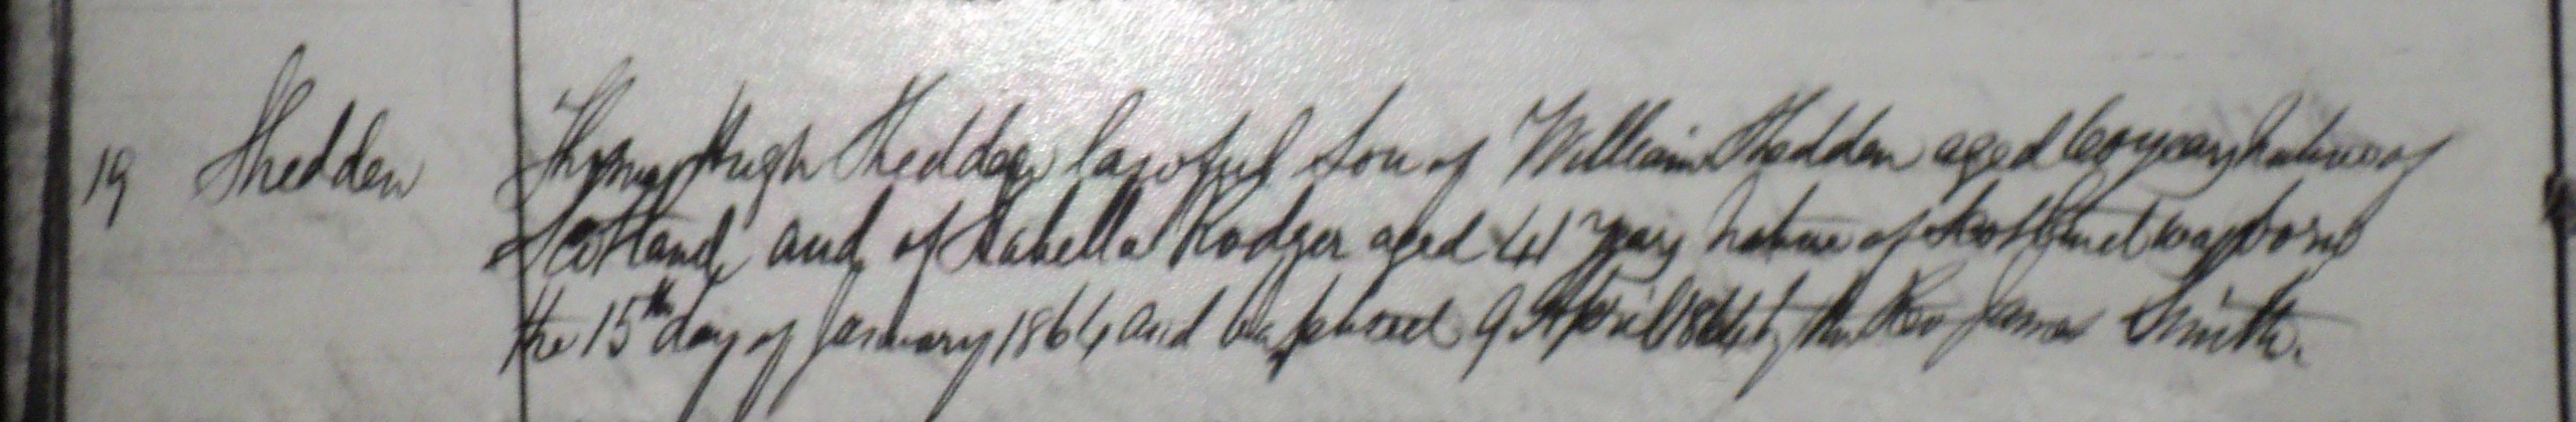 19 Shedden Thomas Hugh Shedden lawful Son of William Shedden aged 60 years native of
Scotland and of Isabella Rodger aged 41 years native of Scotland was born
the 15th day of January 1864 and baptized 9 April 1864 by the Rev James Smith.